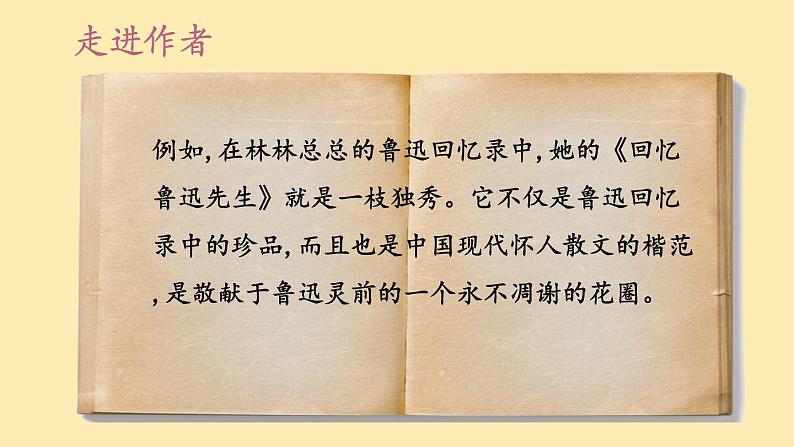 走进作者
例如,在林林总总的鲁迅回忆录中,她的《回忆
鲁迅先生》就是一枝独秀。它不仅是鲁迅回忆
录中的珍品,而且也是中国现代怀人散文的楷范
,是敬献于鲁迅灵前的一个永不凋谢的花圈。